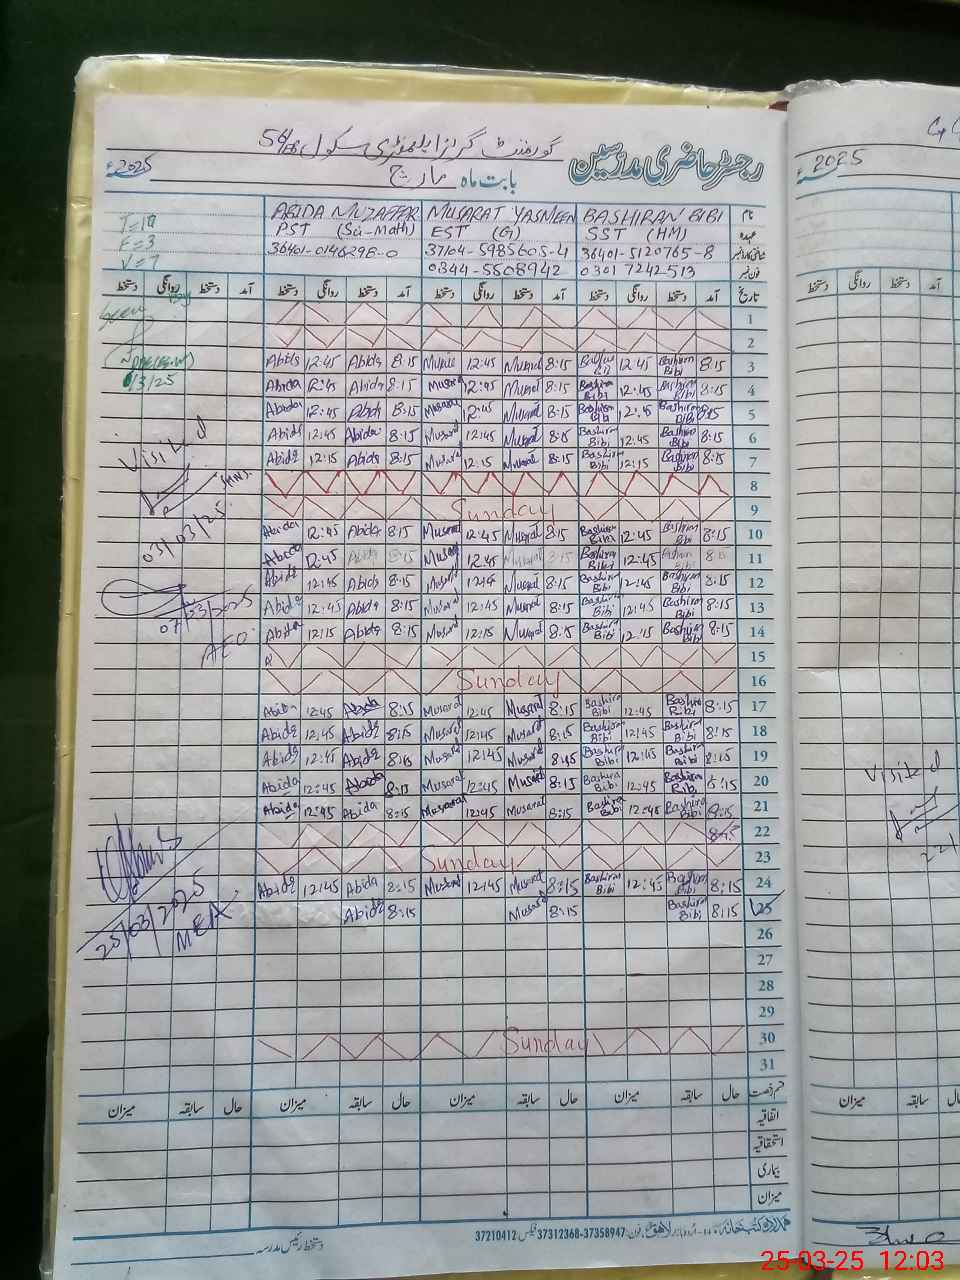 گورنمنٹ گرلز ایلیمنٹری سکول 56/EB
رجسٹر حاضری مدرسین
بابت ماہ مارچ 2025ء
2025
نام BASHIRAN BIBI MUSARAT YASMEEN ABIDA MUZAFFER
عہدہ SST (HM) EST (G) PST (Sci-Math)
شناختی کارڈ نمبر 36401-5120765-8 37104-5985605-4 36401-0146298-0
فون نمبر 0301 7242513 0344-5508942
F=3
V=7
تاریخ آمد دستخط روانگی دستخط آمد دستخط روانگی دستخط آمد دستخط روانگی دستخط آمد دستخط روانگی دستخط
1
2
3 8:15 Bashiran Bibi 12:45 8:15 Musarat 12:45 8:15 Abida 12:45 Abida
4 8:15 Bashiran Bibi 12:45 Bashiran Bibi 8:15 Musarat 12:45 Musarat 8:15 Abida 12:45 Abida
5 8:15 Bashiran Bibi 12:45 Bashiran Bibi 8:15 Musarat 12:45 Musarat 8:15 Abida 12:45 Abida
6 8:15 Bashiran Bibi 12:45 Bashiran Bibi 8:15 Musarat 12:45 Musarat 8:15 Abida 12:45 Abida
7 8:15 Bashiran Bibi 12:15 Bashiran Bibi 8:15 Musarat 12:15 Musarat 8:15 Abida 12:15 Abida
8
9 Sunday
10 8:15 Bashiran Bibi 12:45 Bashiran Bibi 8:15 Musarat 12:45 Musarat 8:15 Abida 12:45 Abida
11 8:15 Bibi 12:45 Bashiran Bibi 8:15 Musarat 12:45 Musarat 8:15 Abida 12:45 Abida
12 8:15 Bashiran Bibi 12:45 Bashiran Bibi 8:15 Musarat Musarat 8:15 Abida 12:45 Abida
13 8:15 Bashiran Bibi 12:45 Bashiran Bibi 8:15 Musarat 12:45 Musarat 8:15 Abida 12:45 Abida
14 8:15 Bashiran Bibi 12:15 Bashiran Bibi 8:15 Musarat 12:15 Musarat 8:15 Abida 12:15 Abida
15
16 Sunday
17 8:15 Bashiran Bibi 12:45 Bashiran Bibi 8:15 Musarat 12:45 Musarat 8:15 Abida 12:45 Abida
18 8:15 Bashiran Bibi 12:45 Bashiran Bibi 8:15 Musarat 12:45 Musarat 8:15 Abida 12:45 Abida
19 8:15 Bashiran Bibi 12:45 Bashiran Bibi Musarat 12:45 Musarat 8:15 Abida 12:45 Abida
20 8:15 Bashiran Bibi 12:45 Bashiran Bibi 8:15 Musarat 12:45 Musarat 8:15 Abida 12:45 Abida
21 8:15 Bashiran Bibi 12:45 Bashiran Bibi 8:15 Musarat 12:45 Musarat 8:15 Abida 12:45 Abida
22
23 Sunday
24 8:15 Bashiran Bibi 12:45 Bashiran Bibi 8:15 Musarat 12:45 Musarat 8:15 Abida 12:45 Abida
25 8:15 Bashiran Bibi 8:15 Musarat 8:15 Abida
26
27
28
29
30 Sunday
31
Seen
/3/25
Visited
03/03/25
07/03/2025
AEO
25/03/2025
MEA
Visited
22/
قسم رخصت حال سابقہ میزان حال سابقہ میزان حال سابقہ میزان حال سابقہ میزان
اتفاقیہ
استحقاقیہ
بیماری
میزان
فون: 37312368-37358947 فیکس: 37210412
دستخط رئیس مدرسہ
روانگی دستخط آمد
دستخط
میزان سابقہ
25-03-25 12:03